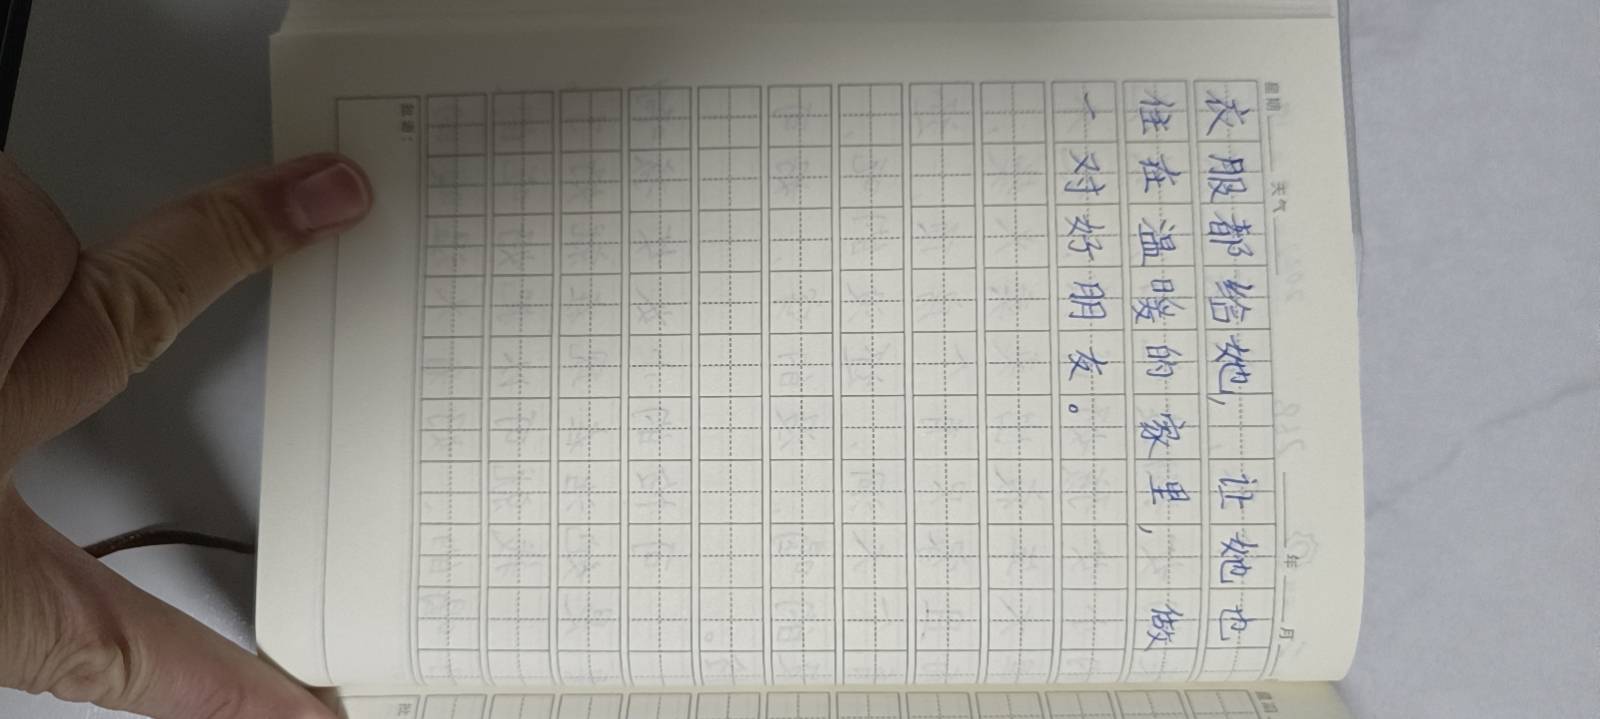 星期 天气 年 月
衣服都给她,让她也
住在温暖的家里,做
一对好朋友。
批